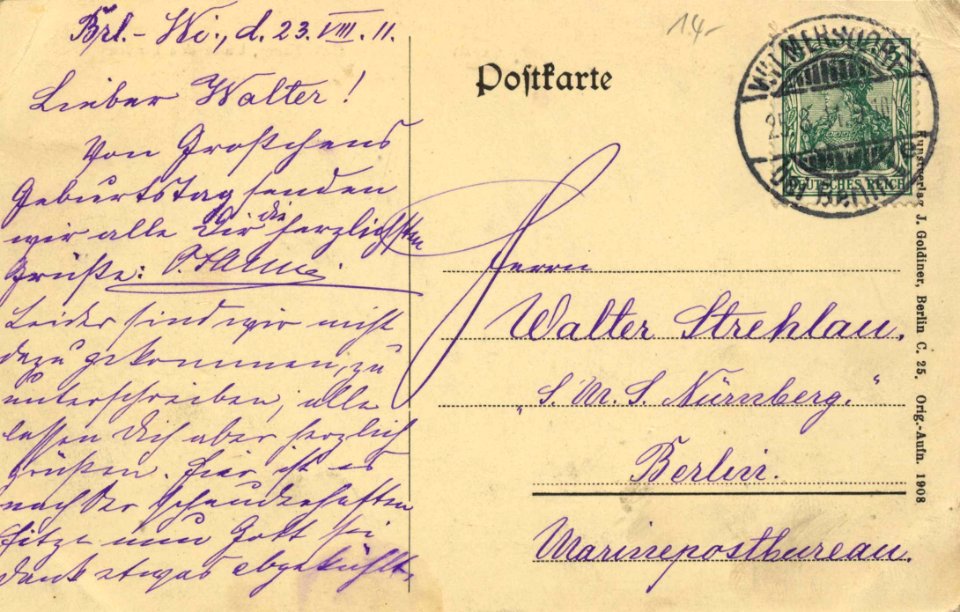 Brl.- Wi., d. 23. VIII. 11.
Lieber Walter!
Von Großchens
Geburtstag senden
wir alle Dir die herzlichsten
Grüße:
Leider sind wir nicht
dazu gekommen, zu
unterschreiben, alle
lassen Dich aber herzlich
grüßen. Hier ist es
nach der schauderhaften
Hitze nun Gott sei
dank etwas abgekühlt.
14.-
Postkarte
WILMERSDORF
DEUTSCHES REICH
Herrn
Walter Strehlau.
"S. M. S. Nürnberg."
Berlin.
Marinepostbureau.
Kunstverlag J. Goldiner, Berlin C. 25. Orig.-Aufn. 1908